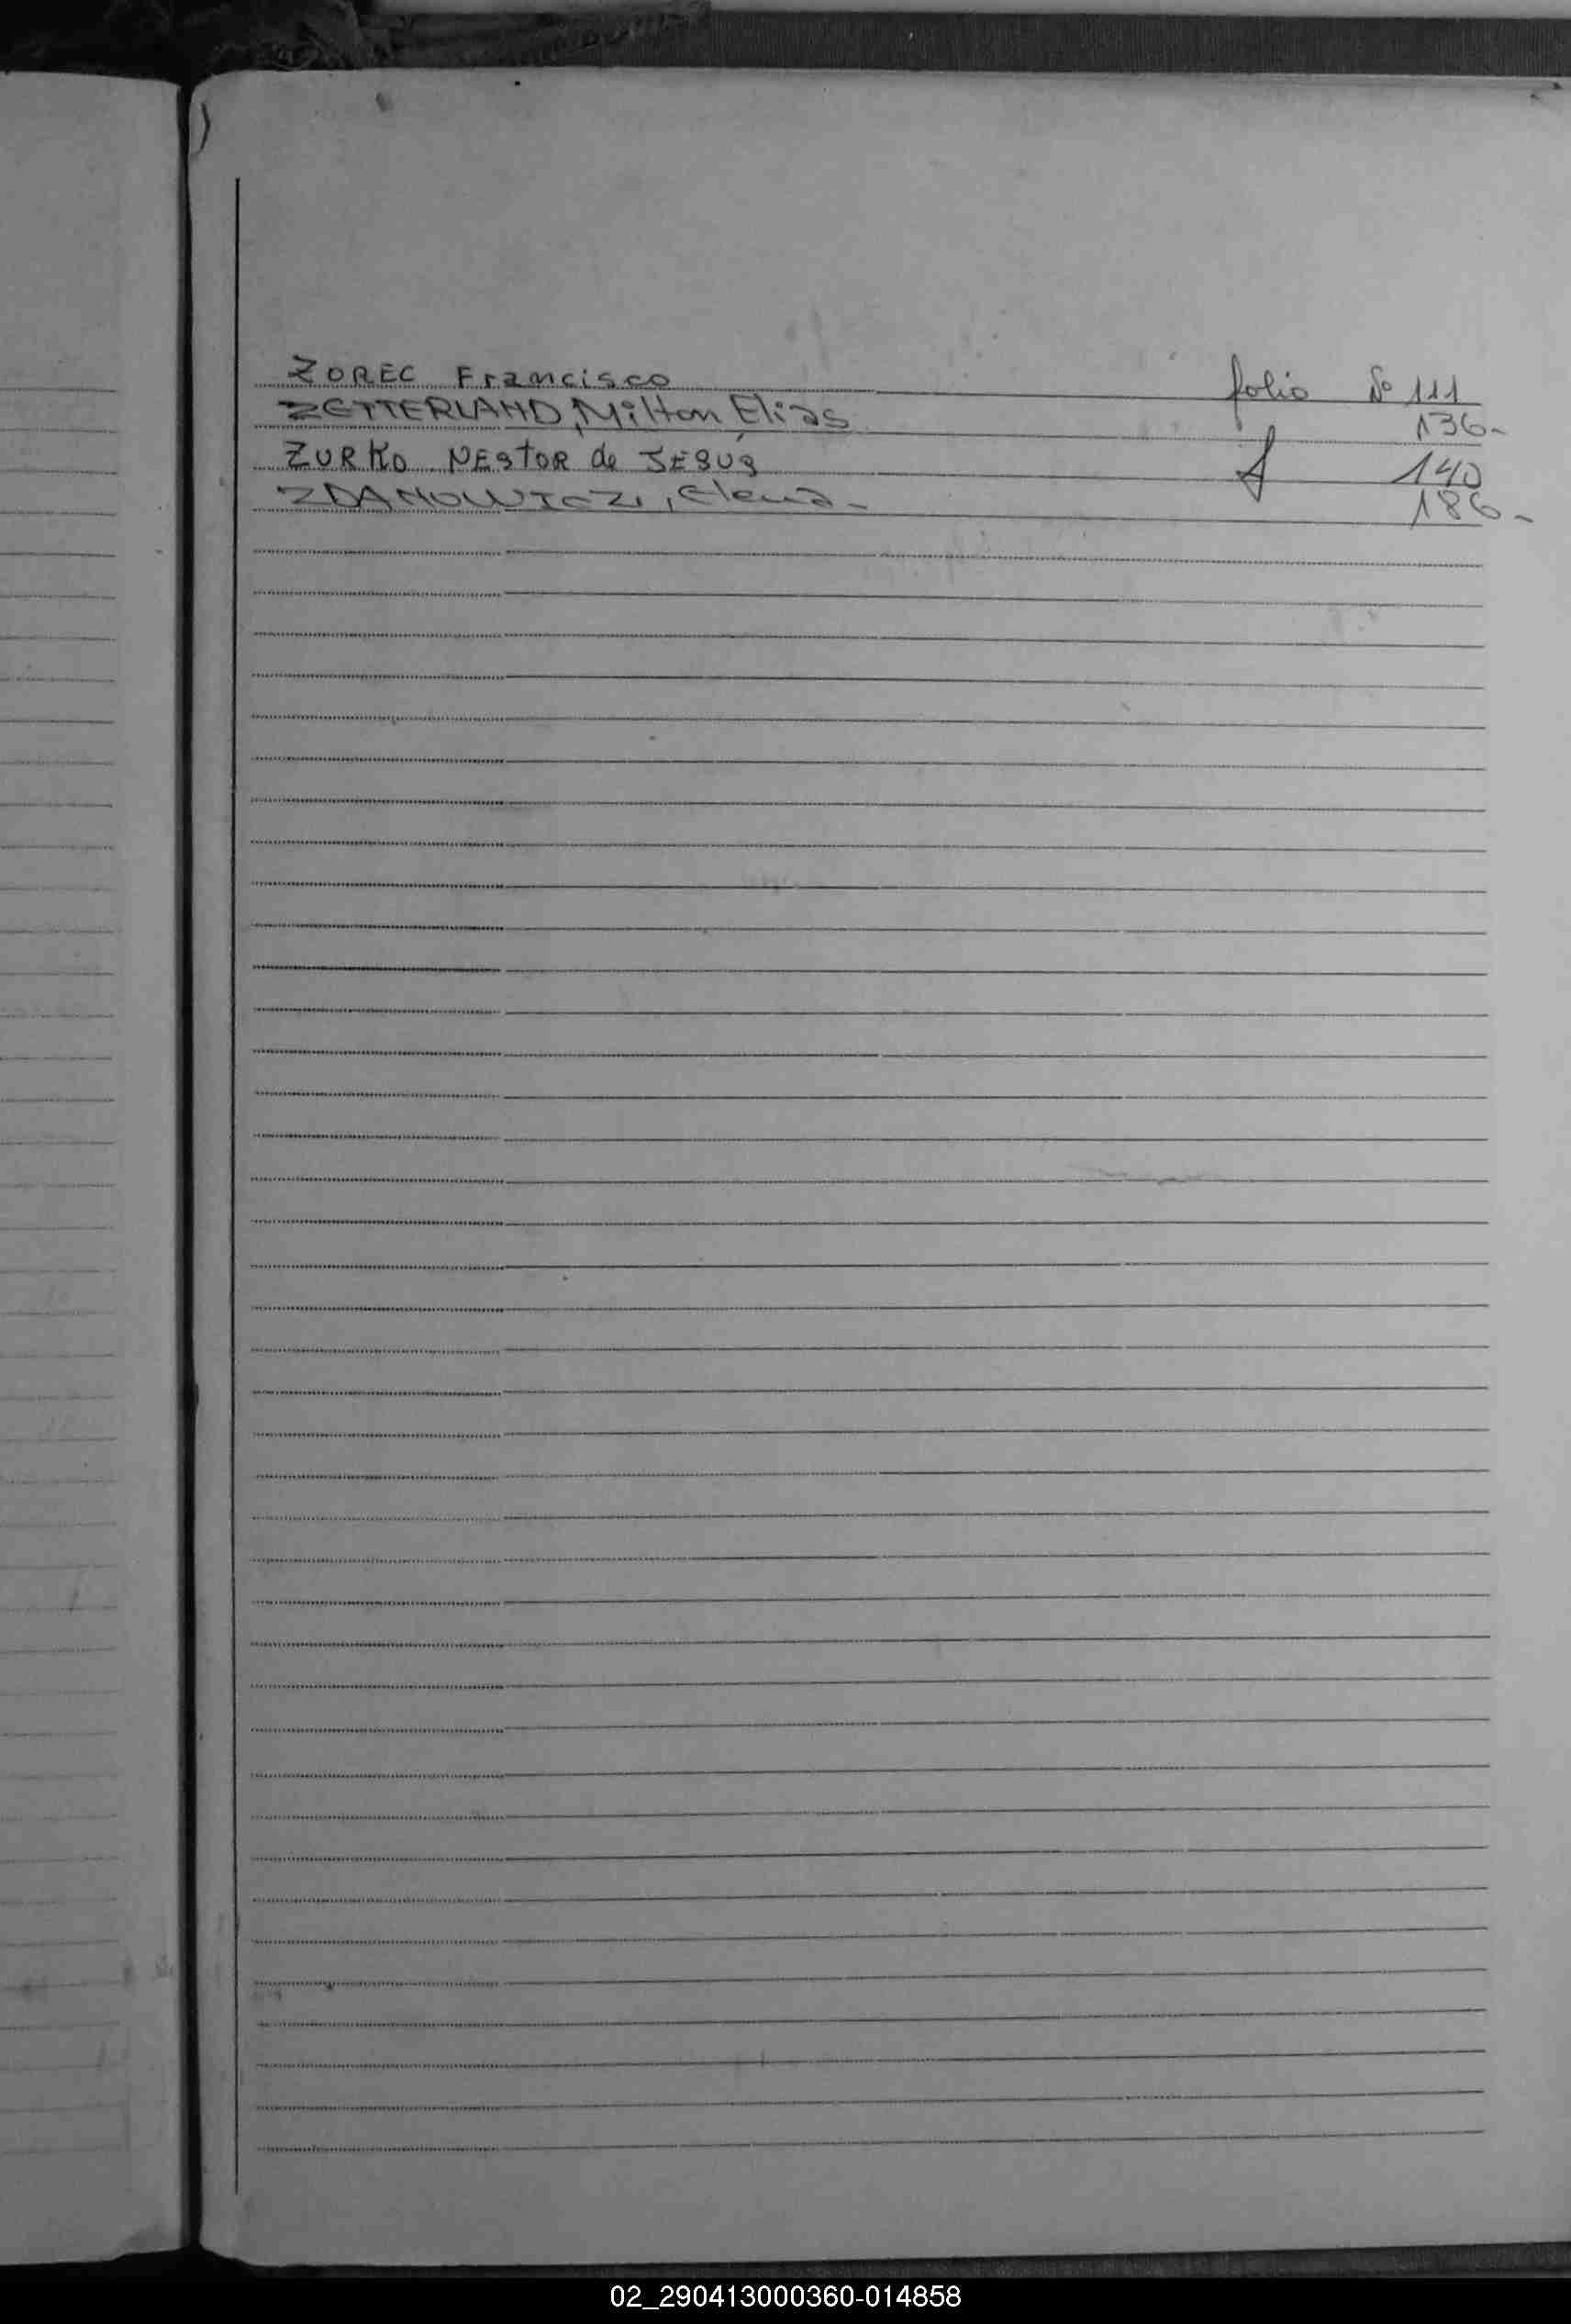 ZOREC Francisco folio Nº 111
ZETTERLAND, Milton Elias 136-
ZURKO NEstOR de JESÚS f 140
ZDANOWICZ, Elena - 186-
02_290413000360-014858